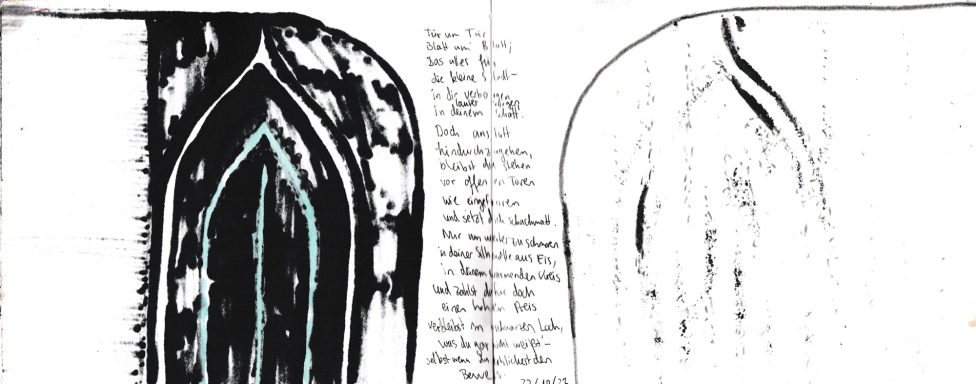 Tür um Tür
Blatt um Blatt,
Das alles für
die kleine Stadt-
in dir verborgen
lauter
in deinem Schaft.
Doch anstatt
hindurchzugehen,
bleibst du stehen
vor offenen Toren
wie eingefroren
und setzt dich schachmatt.
Nur um weiter zu schmoren
in deiner Silhouette aus Eis,
in deinem wärmenden Kreis
und zahlst dafür doch
einen hohen Preis
verbleibst im schwarzen Loch,
was du gar nicht weißt-
selbst wenn du erblickest den
Beweis.